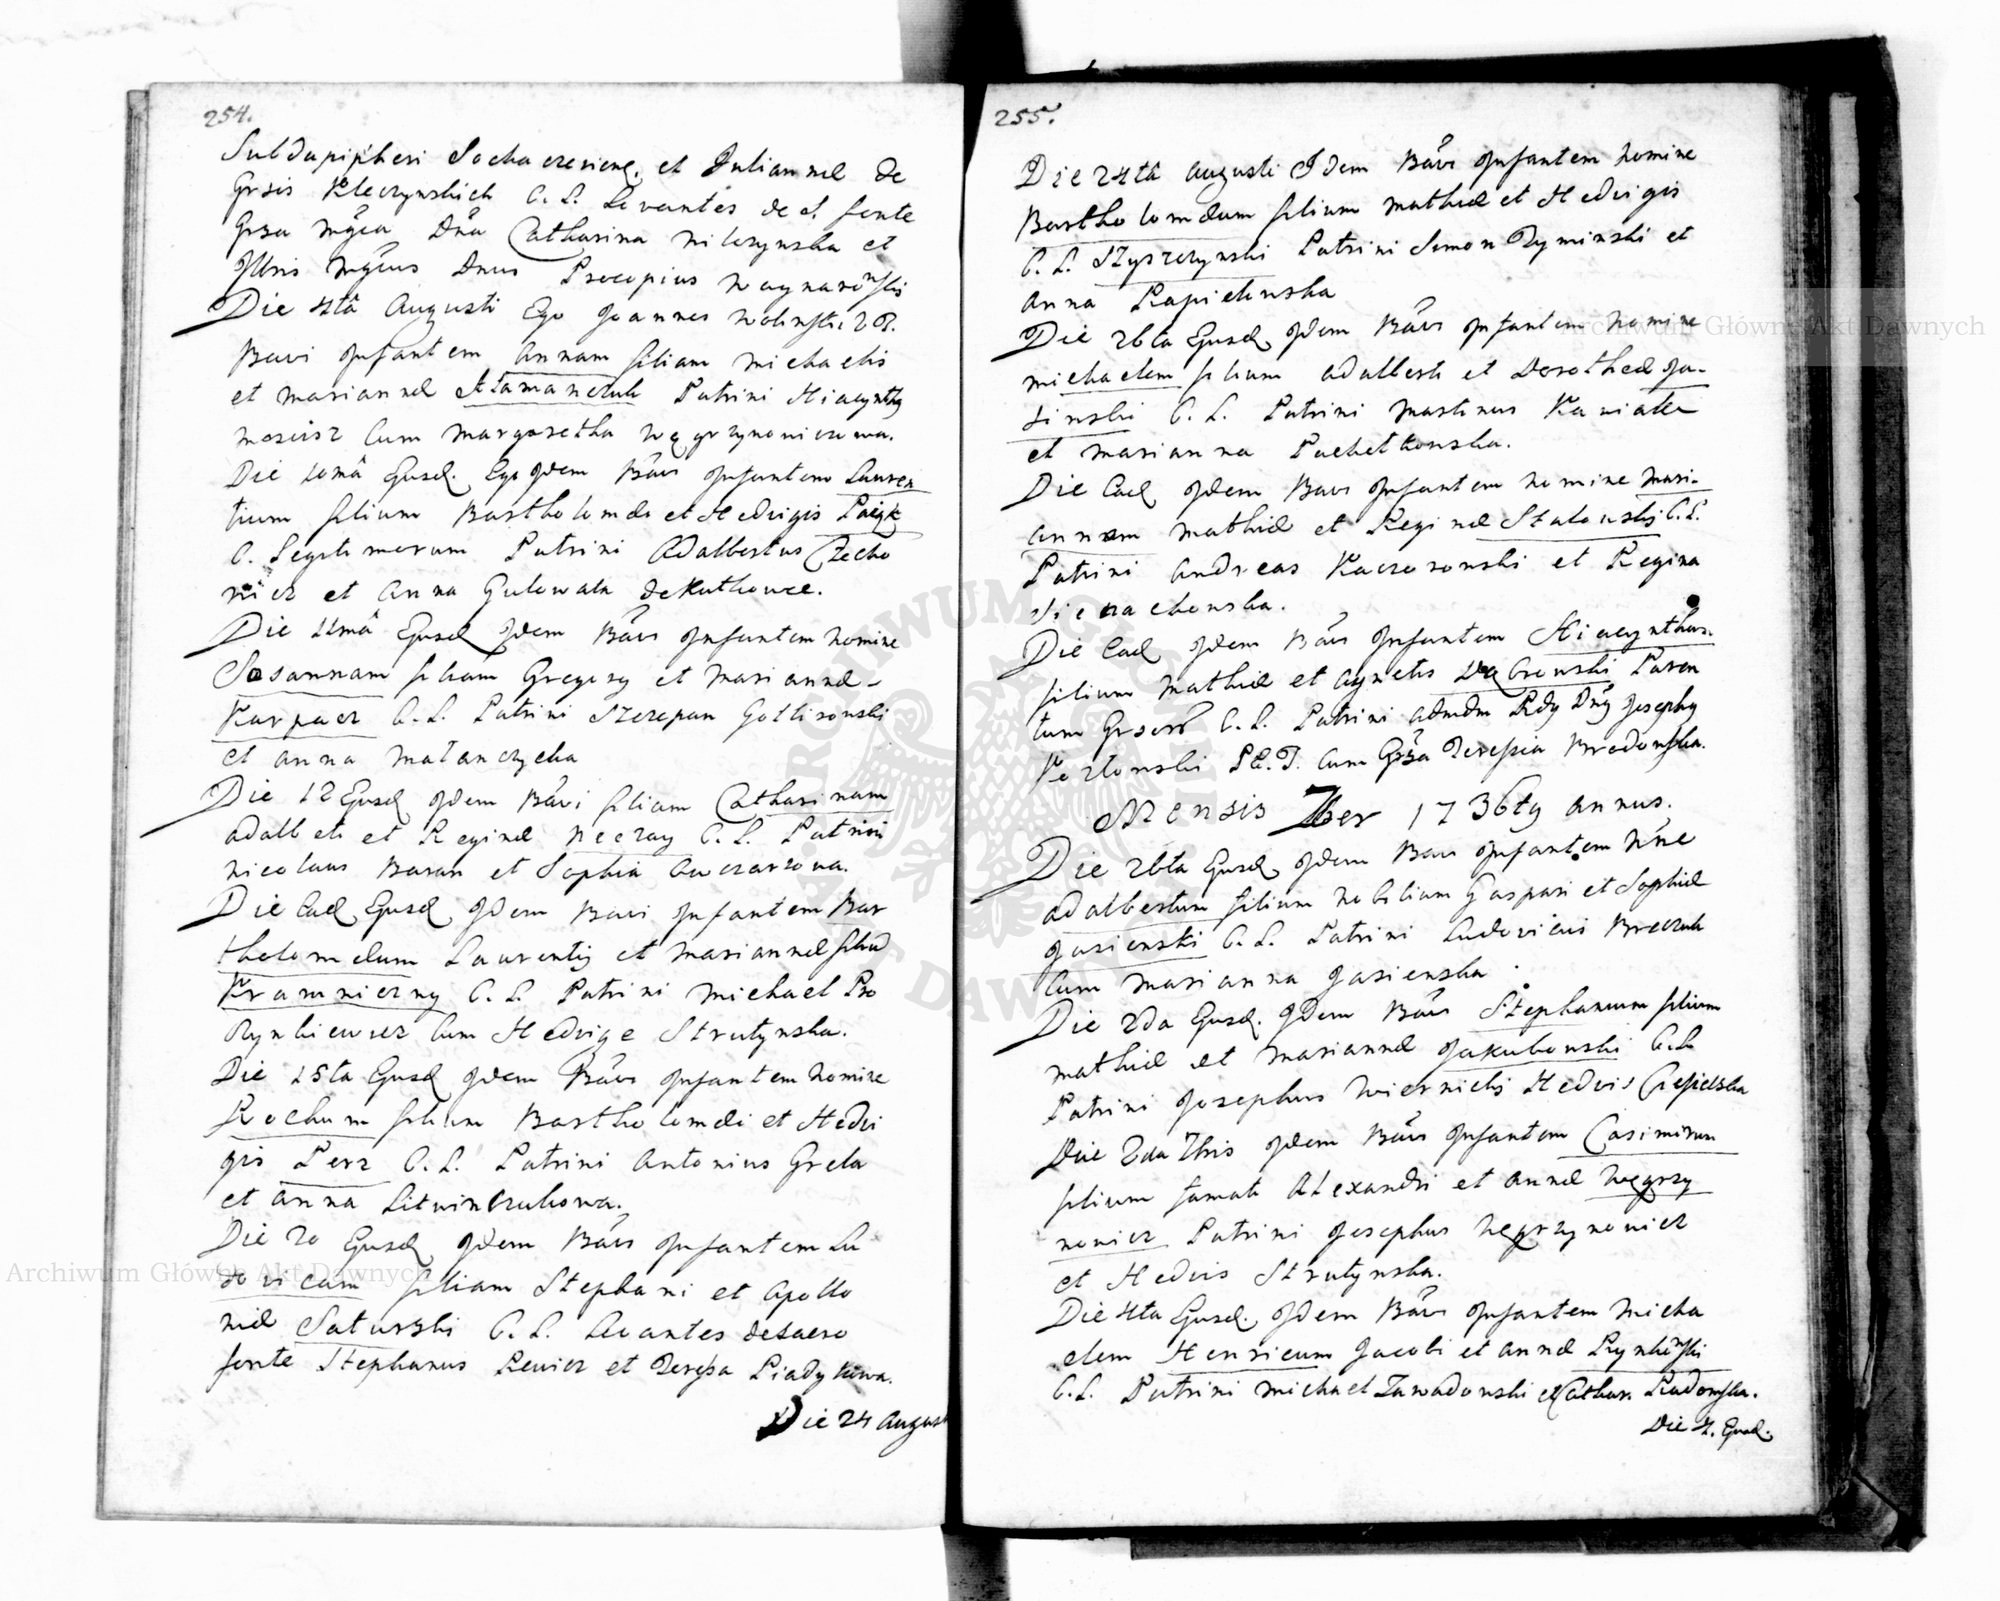 254.
Subdapipheri Sochaczeviens. et Juliannæ de
Grsis Kleczynskich C. L. Levantes de S. fonte
Grsa Mgca Dna Catharina Milczynska et
Illris Mgcus Dnus Procopius
Die 4tâ Augusti Ego Joannes
Bavi Infantem Annam filiam Michaelis
et Mariannæ Atamanczuk Patrini Hiacynthy
cum Margaretha Węgrzynowiczowa.
Die 10mâ Ejusd. Ego Idem Bavi Infantem Lauren
tium filium Bartholomæi et Hedvigis
C. Legitimorum Patrini Adalbertus Czecho
wicz et Anna de
Die 11mâ Ejusd Idem Bavi Infantem Nomine
Sosannam filiam Gregory et Mariannæ
Karpacz C. L. Patrini Szczepan
et Anna Matanczycha
Die 12 Ejusd Idem Bavi filiam Catharinam
Adalbeti et Reginæ Neczay C. L. Patrini
Nicolaus Baran et Sophia Owczarzowa.
Die Ead Ejusd Idem Bavi Infantem Bar
tholomæum Laurenty et Mariannæ filiu
Kramniczny C. L. Patrini Michael Pro
Rynkiewicz cum Hedvige Strutynska.
Die 15ta Ejusd Idem Bavi Infantem Nomine
Rochum filium Bartholomæi et Hedvi
gis Perz C. L. Patrini Antonius Grela
et Anna Litwinczukowa.
Die 20 Ejusd Idem Bavi Infantem Lu
dovicam filiam Stephani et Apollo
niæ Saturski C. L. Levantes de Sacro
fonte Stephanus Rewicz et Teressa
Die 24 August
255.
Die 24tâ Augusti Idem Bavi Infantem Nomine
Bartholomæum filium Mathiæ et Hedvigis
C. L. Szyszczynski Patrini Simon Tyminski et
Anna Kapielinska
Die 26ta Ejusd Idem Bavi Infantem Nomine
Michaelem filium Adalberti et Dorotheæ Ja-
sinski C. L. Patrini Martinus
et Marianna
Die Ead Idem Bavi Infantem Nomine Mari-
annam Mathiæ et Reginæ C. L.
Patrini Andreas et Regina
Die Ead Idem Bavi Infantem Hiacynthum
filium Mathiæ et Agnetis Dąbrowski Paren
tum Grsor C. L. Patrini Admdm Rdy Dny Josephy
Kozlowski cum Grsa Teressia
Mensis 7ber 1736ty Annus.
Die 26ta Ejusd Idem Bavi Infantem Nne
Adalbertum filium Nobilium Gaspari et Sophiæ
Jasienski C. L. Patrini Ludovicus
cum Marianna Jasienska
Die 2da Ejusd. Idem Bavi Stephanum filium
Mathiæ et Mariannæ Jakubowski C. L.
Patrini Josephus Wiernicki Hedvis Ciesielska
Die 2da 7bris Idem Bavi Infantem Casimirum
filium famati Alexandri et Annæ Węgrzy
nowicz Patrini Josephus Węgrzynowicz
et Hedvis Strutynska.
Die 4ta Ejusd. Idem Bavi Infantem Micha
elem Henricum Jacobi et Annæ
C. L. Patrini Michael Zawadowski et Cathar. Radomska.
Die 4. Ejusd.
Archiwum Główne Akt Dawnych
Archiwum Główne Akt Dawnych
ARCHIWUM GŁÓWNE AKT DAWNYCH